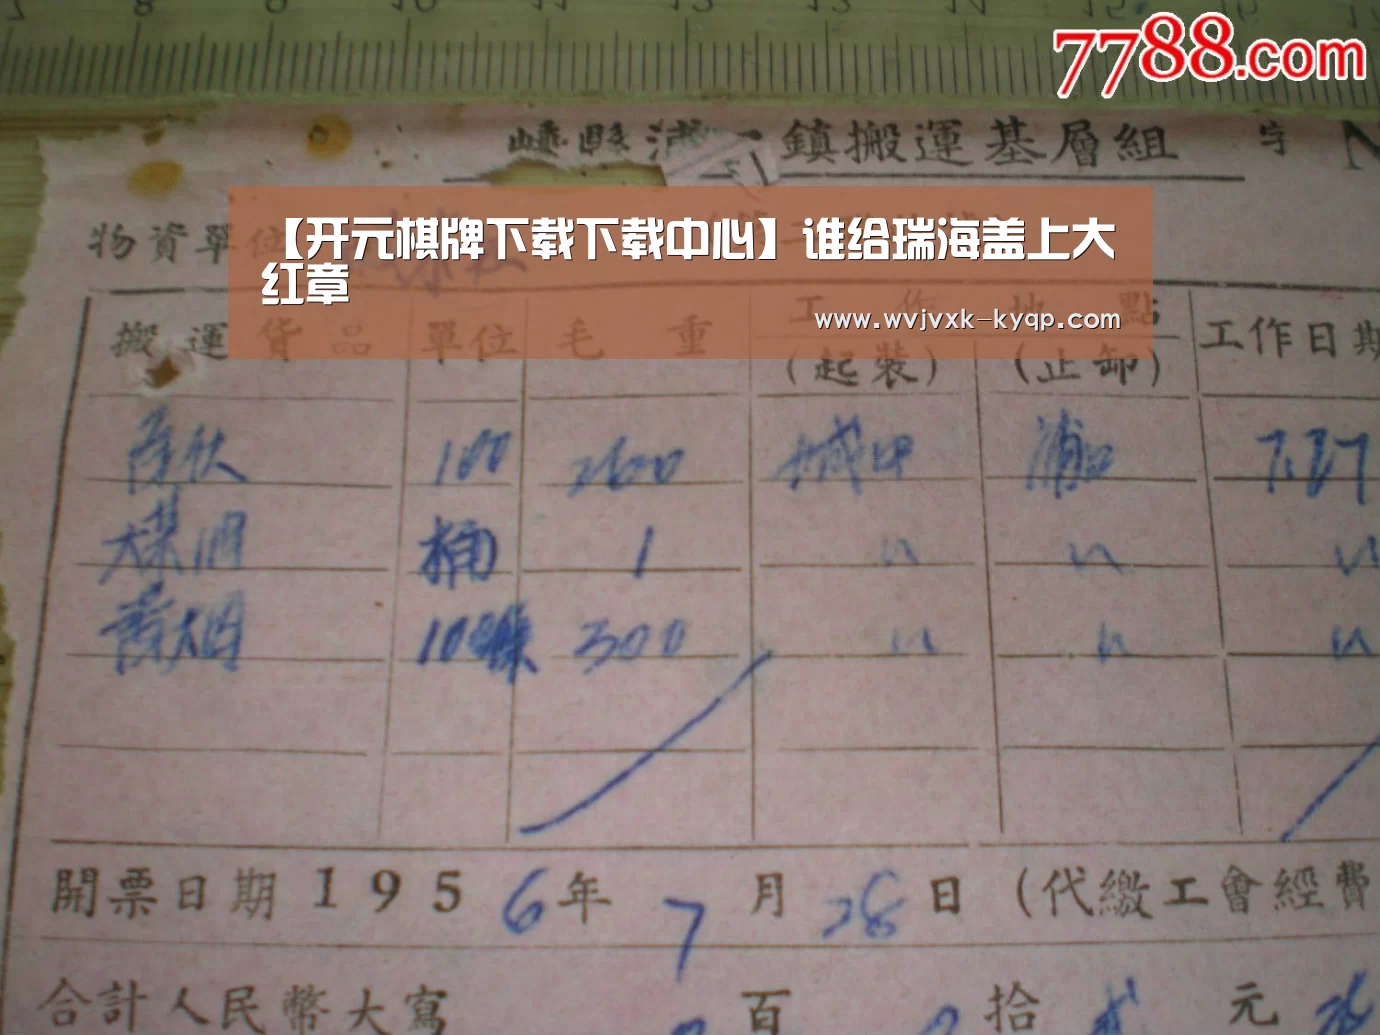 7788.com
嵊縣浦 鎮搬運基層組 字 N
【开元棋牌下载下载中心】谁给瑞海盖上大
红章
www.wvjvxk-kyqp.com
物資單位
搬運貨品 單位 毛重 工作地點 工作日期
(起裝) (止卸)
100 2600 城中 浦口 7.27
桶 1 〃 〃 〃
300 〃 〃 〃
開票日期 1956年7月28日 (代繳工會經費
合計人民幣大寫 百 拾 元